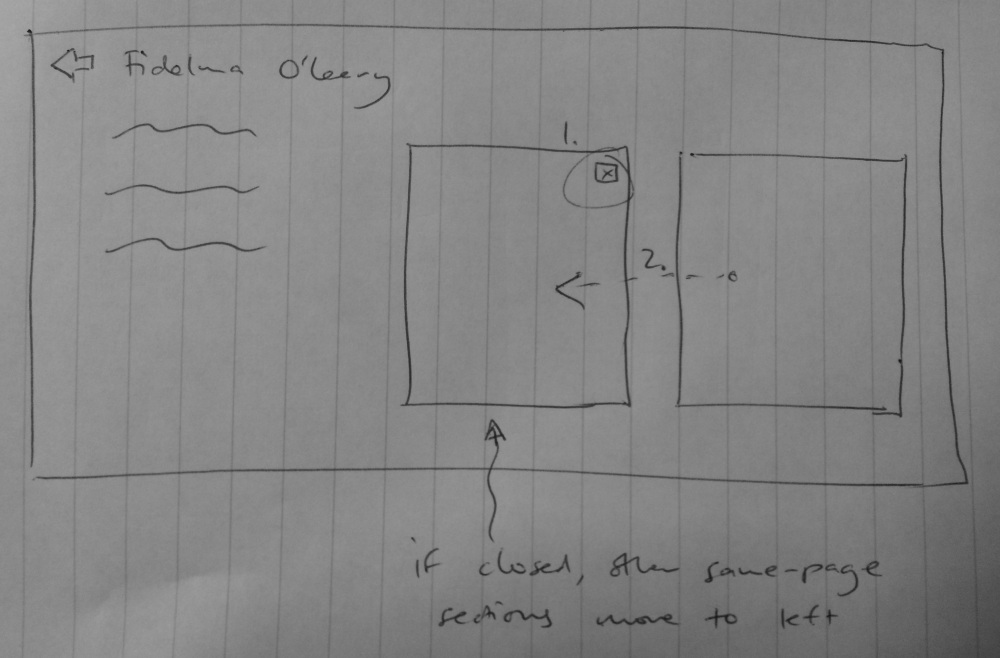 Fidelma O'Leary
1.
x
2.
if closed, other same-page
sections move to left